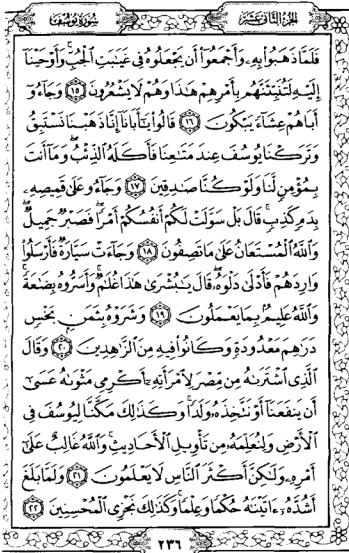 الجزء الثاني عشر
سورة يوسف
فَلَمَّا ذَهَبُوا۟ بِهِۦ وَأَجْمَعُوٓا۟ أَن يَجْعَلُوهُ فِى غَيَـٰبَتِ ٱلْجُبِّ وَأَوْحَيْنَآ
إِلَيْهِ لَتُنَبِّئَنَّهُم بِأَمْرِهِمْ هَـٰذَا وَهُمْ لَا يَشْعُرُونَ ١٥ وَجَآءُو
أَبَاهُمْ عِشَآءً يَبْكُونَ ١٦ قَالُوا۟ يَـٰٓأَبَانَآ إِنَّا ذَهَبْنَا نَسْتَبِقُ
وَتَرَكْنَا يُوسُفَ عِندَ مَتَـٰعِنَا فَأَكَلَهُ ٱلذِّئْبُ وَمَآ أَنتَ
بِمُؤْمِنٍ لَّنَا وَلَوْ كُنَّا صَـٰدِقِينَ ١٧ وَجَآءُو عَلَىٰ قَمِيصِهِۦ
بِدَمٍ كَذِبٍ قَالَ بَلْ سَوَّلَتْ لَكُمْ أَنفُسُكُمْ أَمْرًا فَصَبْرٌ جَمِيلٌ
وَٱللَّهُ ٱلْمُسْتَعَانُ عَلَىٰ مَا تَصِفُونَ ١٨ وَجَآءَتْ سَيَّارَةٌ فَأَرْسَلُوا۟
وَارِدَهُمْ فَأَدْلَىٰ دَلْوَهُۥ قَالَ يَـٰبُشْرَىٰ هَـٰذَا غُلَـٰمٌ وَأَسَرُّوهُ بِضَـٰعَةً
وَٱللَّهُ عَلِيمٌۢ بِمَا يَعْمَلُونَ ١٩ وَشَرَوْهُ بِثَمَنٍۭ بَخْسٍ
دَرَٰهِمَ مَعْدُودَةٍ وَكَانُوا۟ فِيهِ مِنَ ٱلزَّٰهِدِينَ ٢٠ وَقَالَ
ٱلَّذِى ٱشْتَرَىٰهُ مِن مِّصْرَ لِٱمْرَأَتِهِۦٓ أَكْرِمِى مَثْوَىٰهُ عَسَىٰٓ
أَن يَنفَعَنَآ أَوْ نَتَّخِذَهُۥ وَلَدًا وَكَذَٰلِكَ مَكَّنَّا لِيُوسُفَ فِى
ٱلْأَرْضِ وَلِنُعَلِّمَهُۥ مِن تَأْوِيلِ ٱلْأَحَادِيثِ وَٱللَّهُ غَالِبٌ عَلَىٰٓ
أَمْرِهِۦ وَلَـٰكِنَّ أَكْثَرَ ٱلنَّاسِ لَا يَعْلَمُونَ ٢١ وَلَمَّا بَلَغَ
أَشُدَّهُۥٓ ءَاتَيْنَـٰهُ حُكْمًا وَعِلْمًا وَكَذَٰلِكَ نَجْزِى ٱلْمُحْسِنِينَ ٢٢
٢٣٦